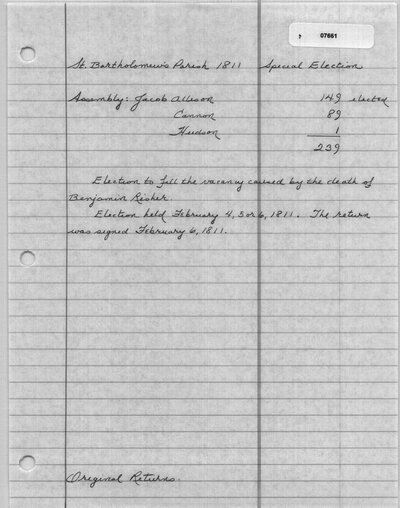 07661
St. Bartholomew's Parish 1811 Special Election
Assembly: Jacob Allison 149 elected
Cannon 89
Hudson 1
239
Election to fill the vacancy caused by the death of
Benjamin Risher.
Election held February 4, 5 or 6, 1811. The return
was signed February 6, 1811.
Original Returns.